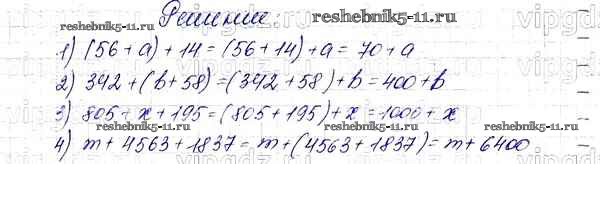 Решение:
reshebnik5-11.ru
reshebnik5-11.ru
1) (56 + a) + 14 = (56 + 14) + a = 70 + a
2) 342 + (b + 58) = (342 + 58) + b = 400 + b
3) 805 + x + 195 = (805 + 195) + x = 1000 + x
reshebnik5-11.ru
reshebnik5-11.ru
4) m + 4563 + 1837 = m + (4563 + 1837) = m + 6400
reshebnik5-11.ru